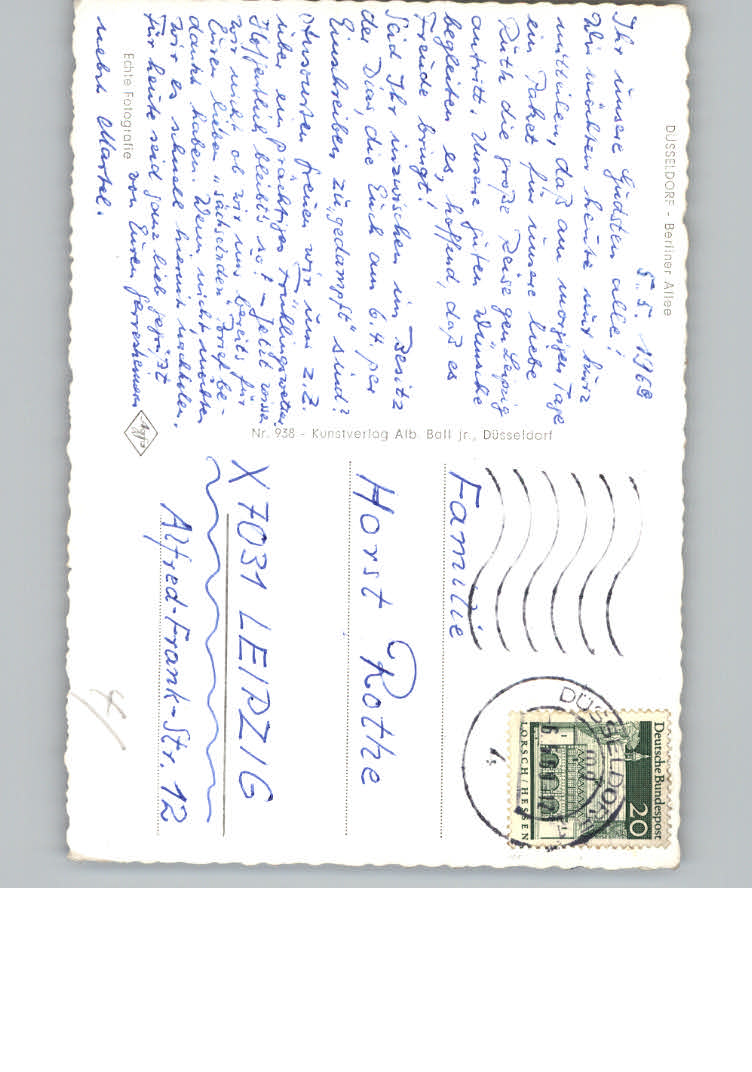 DÜSSELDORF - Berliner Allee
5.5. 1968
Ihr unsere Gudsten alle!
Wir möchten heute nur kurz
mitteilen, daß am morgigen Tage
ein Paket für unsere liebe
Ruth die große Reise gen Leipzig
antritt. Unsere guten Wünsche
begleiten es, hoffend, daß es
Freude bringt!
Seid Ihr inzwischen im Besitz
der Dias, die Euch am 6.4. per
Einschreiben "zugedampft" sind?
Ansonsten freuen wir uns z.Z.
über ein prächtiges Frühlingswetter.
Hoffentlich bleibt's so! - Jetzt wissen
wir nicht, ob wir uns bereits für
Euren lieben "sächsischen" Brief be-
dankt haben. Wenn nicht, möchten
wir es schnell hiermit nachholen.
Für heute seid ganz lieb gegrüßt
von Euren Gerresheimern
nebst Martel.
Echte Fotografie
Agfa
Nr. 938 - Kunstverlag Alb. Ball jr., Düsseldorf
Familie
Horst Rothe
X 7031 LEIPZIG
Alfred-Frank-Str. 12
DÜSSELDORF
Deutsche Bundespost
20
LORSCH/HESSEN